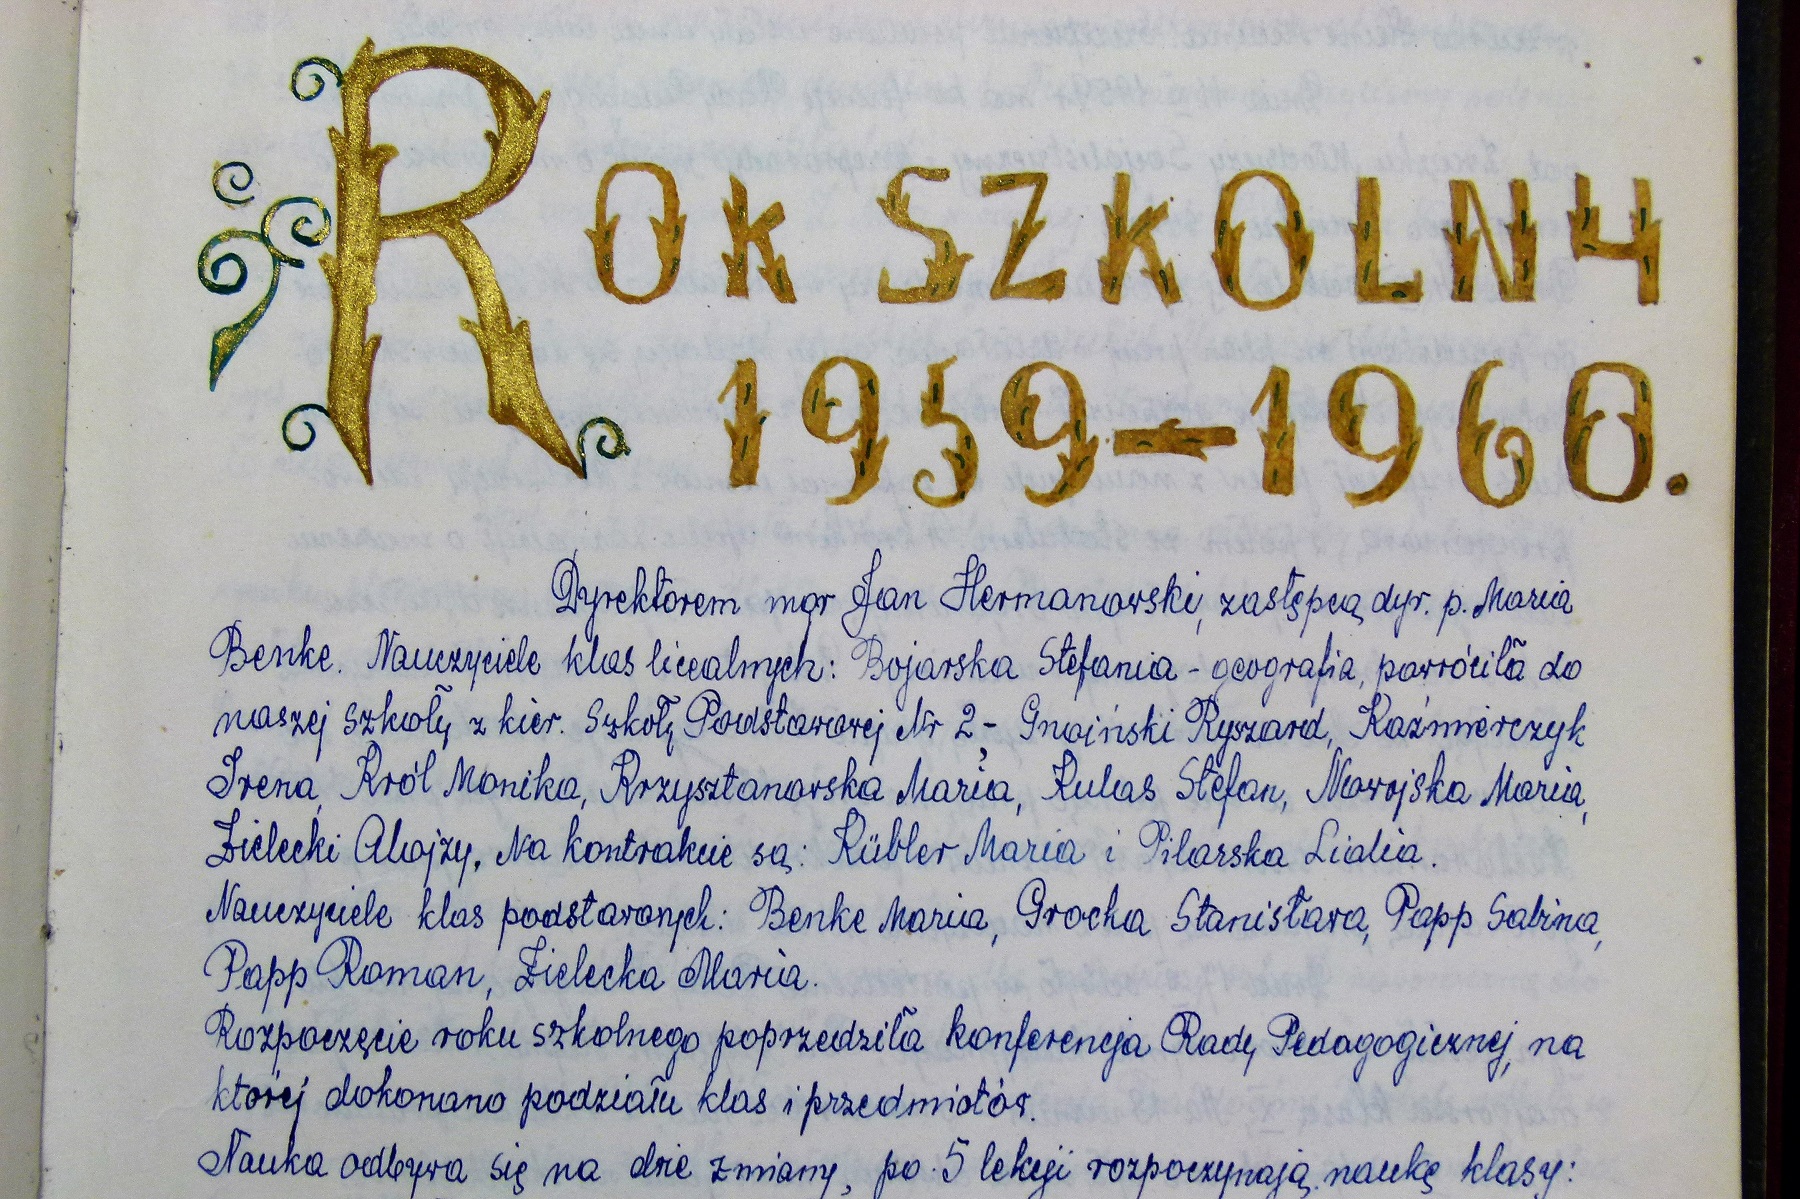 ROK SZKOLNY
1959-1960.
Dyrektorem mgr Jan Hermanowski, zastępcą dyr. p. Maria
Benke. Nauczyciele klas licealnych: Bojarska Stefania - geografia, powróciła do
naszej szkoły z kier. Szkoły Podstawowej Nr 2-, Gnoiński Ryszard, Kaźmierczyk
Irena, Król Monika, Krzysztanowska Maria, Kulas Stefan, Nawojska Maria,
Zielecki Alojzy. Na kontrakcie są: Kübler Maria i Pilarska Lidia.
Nauczyciele klas podstawowych: Benke Maria, Grocka Stanisława, Papp Sabina,
Papp Roman, Zielecka Maria.
Rozpoczęcie roku szkolnego poprzedziła konferencja Rady Pedagogicznej, na
której dokonano podziału klas i przedmiotów.
Nauka odbywa się na dwie zmiany, po 5 lekcji rozpoczynają naukę klasy: